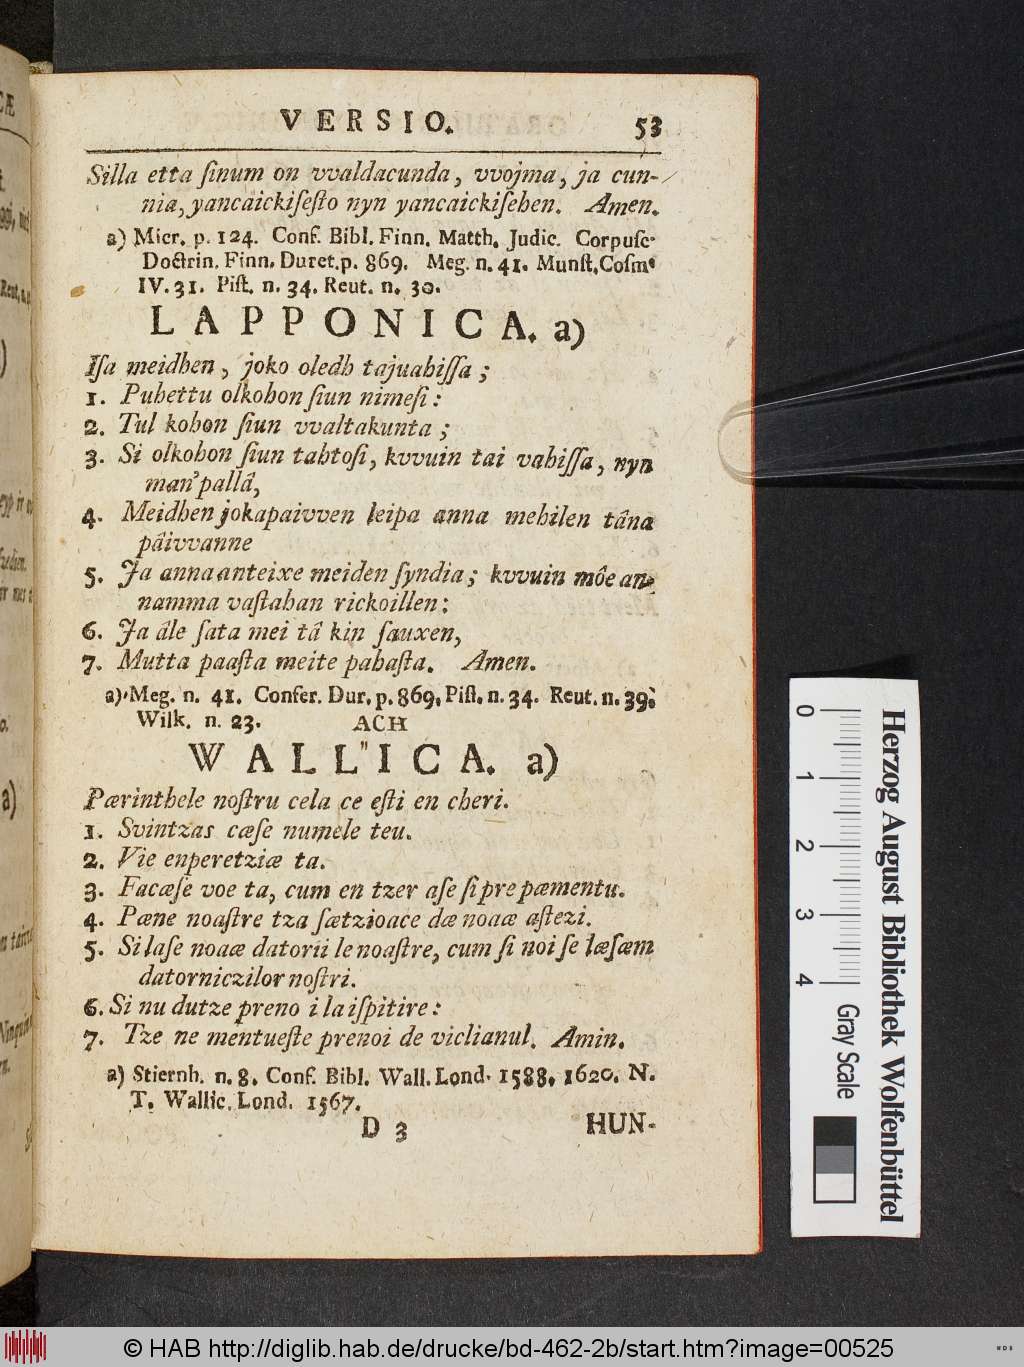 VERSIO. 53
Silla etta ſinum on vvaldacunda, vvojma, ja cun-
nia, yancaickiſeſto nyn yancaickiſehen. Amen.
a) Micr. p. 124. Conf. Bibl. Finn. Matth. Judic. Corpuſc.
Doctrin. Finn. Duret. p. 869. Meg. n. 41. Munſt. Coſm.
IV. 31. Piſt. n. 34. Reut. n. 30.
LAPPONICA. a)
Iſa meidhen, joko oledh tajuahiſſa;
1. Puhettu olkohon ſiun nimeſi:
2. Tul kohon ſiun vvaltakunta;
3. Si olkohon ſiun tahtoſi, kvvuin tai vahiſſa, nyn
man'pallâ,
4. Meidhen jokapaivven leipa anna mehilen tâna
pâivvanne
5. Ja anna anteixe meiden ſyndia; kvvuin môe an-
namma vaſtahan rickoillen:
6. Ja âle ſata mei tâ kin ſauxen,
7. Mutta paaſta meite pahaſta. Amen.
a) Meg. n. 41. Confer. Dur. p. 869. Piſt. n. 34. Reut. n. 39.
Wilk. n. 23.
ACH
WALLICA. a)
Pærinthele noſtru cela ce eſti en cheri.
1. Svintzas cæſe numele teu.
2. Vie enperetziæ ta.
3. Facæſe voe ta, cum en tzer aſe ſi pre pæmentu.
4. Pæne noaſtre tza ſætzioace dæ noaæ aſtezi.
5. Si laſe noaæ datorii le noaſtre, cum ſi noi ſe læſæm
datorniczilor noſtri.
6. Si nu dutze preno i la iſpitire:
7. Tze ne mentueſte prenoi de viclianul. Amin.
a) Stiernh. n. 8. Conf. Bibl. Wall. Lond. 1588. 1620. N.
T. Wallic. Lond. 1567.
D 3 HUN-
0 1 2 3 4
Gray Scale
Herzog August Bibliothek Wolfenbüttel
© HAB http://diglib.hab.de/drucke/bd-462-2b/start.htm?image=00525